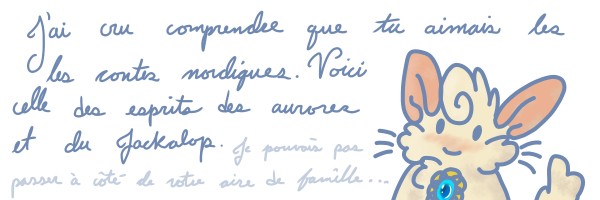 J'ai cru comprendre que tu aimais les
les contes nordiques. Voici
celle des esprits des aurores
et du Jackalop. Je pouvais pas
passer à côté de votre aire de famille...